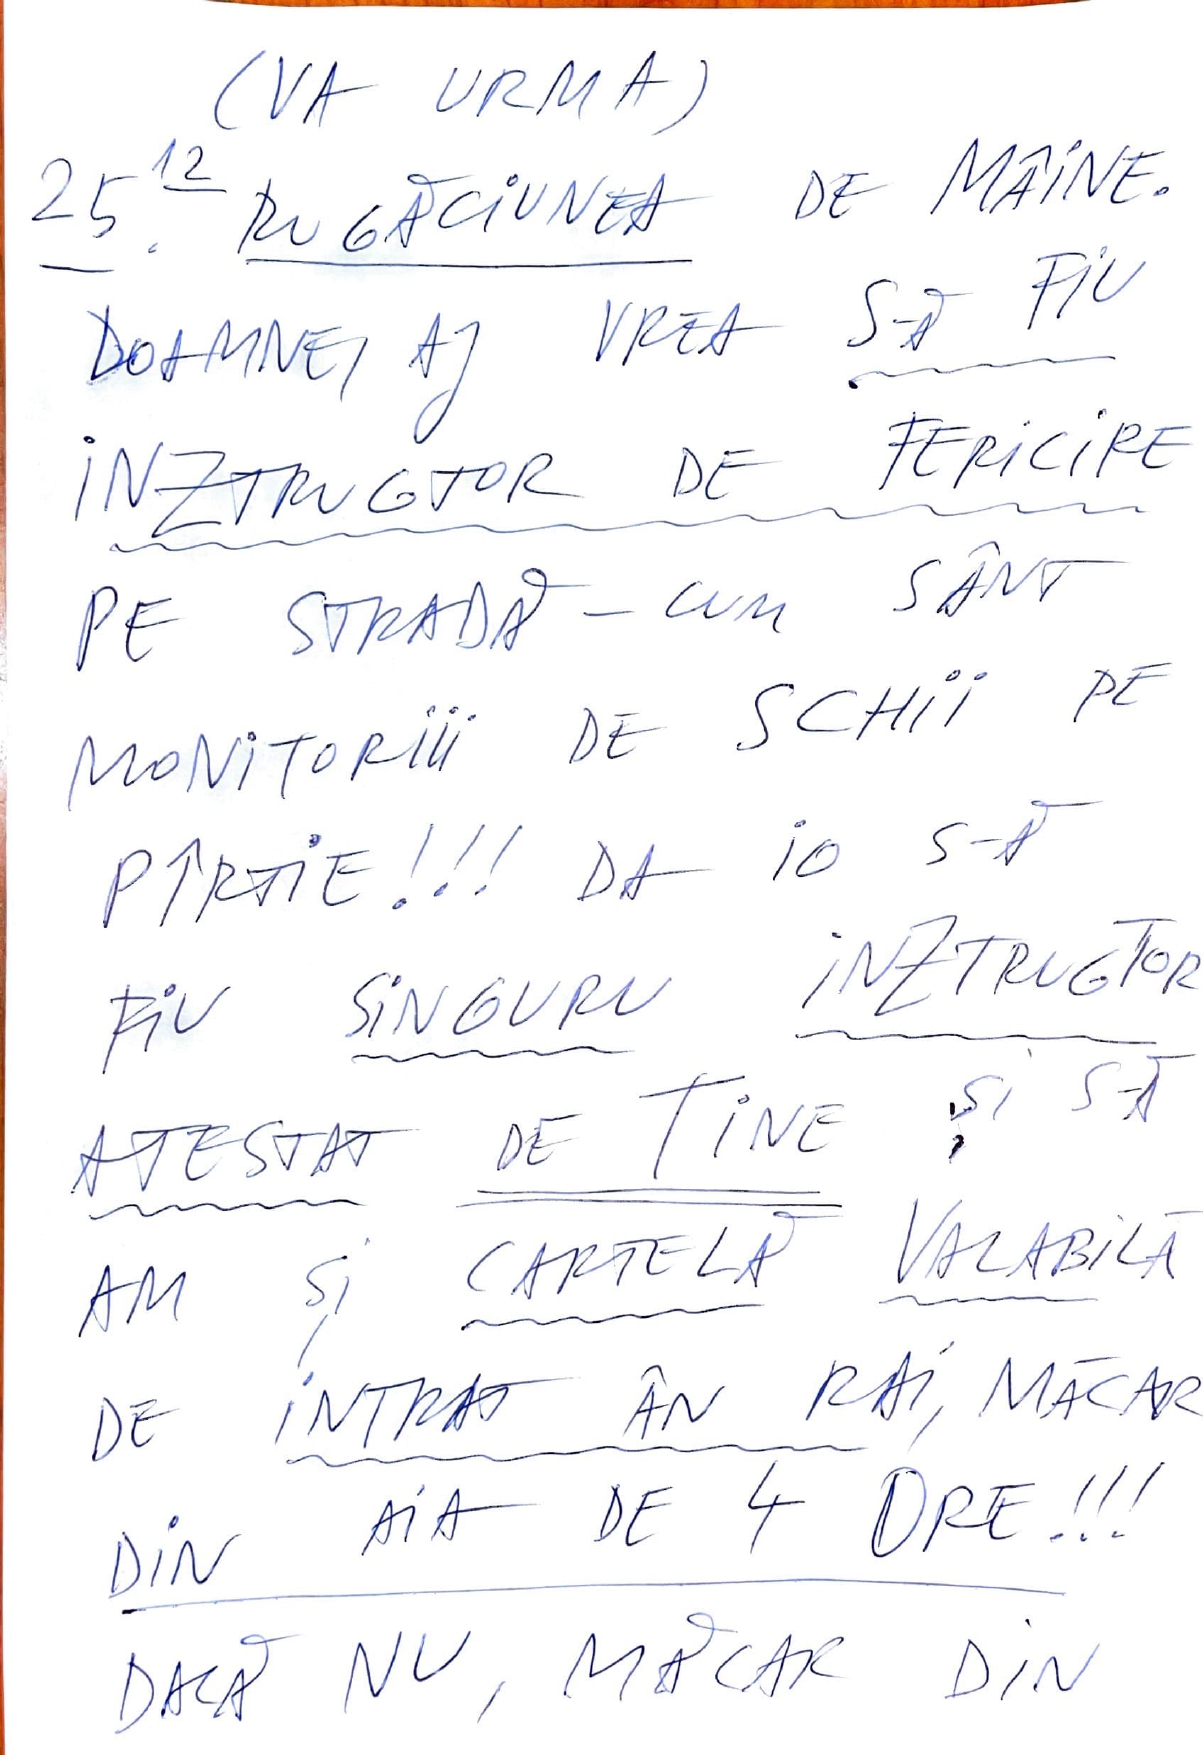 (VA URMA)
25.12 RUGĂCIUNEA DE MÂINE.
DOAMNE, AJ VREA S-Ă FIU
INZTRUGTOR DE FERICIRE
PE STRADĂ - CUM SÂNT
MONITORIII DE SCHII PE
PÎRTIE!!! DA IO S-Ă
FIU SINGURU INZTRUGTOR
ATESTAT DE TINE ȘI S-Ă
AM ȘI CARTELĂ VALABILĂ
DE INTRAT ÂN RAI, MĂCAR
DIN AIA DE 4 ORE!!!
DACĂ NU, MĂCAR DIN